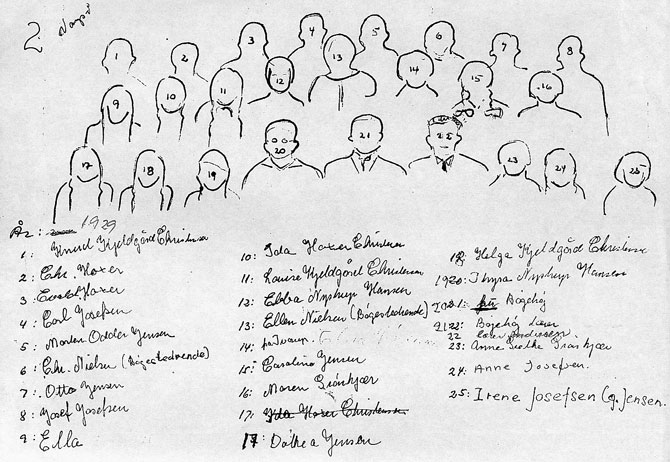 2
1 2 3 4 5 6 7 8
9 10 11 12 13 14 15 16
17 18 19 20 21 22 23 24 25
År: 1929
1: Knud Kjeldgård Christensen
2: Chr. Haxer
3: Ewald Haxer
4: Carl Josefsen
5: Morten Odder Jensen
6: Chr. Nielsen (Bøgestedvende)
7: Otto Jensen
8: Josef Josefsen
9: Ella
10: Ida Haxer Christensen
11: Louise Kjeldgård Christensen
12: Ebba Nystrup Hansen
13: Ellen Nielsen (Bøgestedende)
14:
15: Caroline Jensen
16: Maren Grønkjær
17: Ida Haxer Christensen
17: Dothea Jensen
18: Helga Kjeldgård Christensen
19 20: Thyra Nystrup Hansen
20 21: fru Bøgehøj
21 22: Bøgehøj Lærer
22
23: Anne Grønkjær
24: Anne Josefsen
25: Irene Josefsen (g. Jensen.